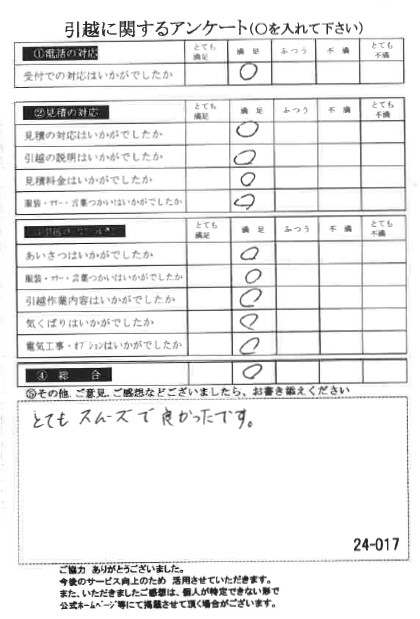 引越に関するアンケート(○を入れて下さい)
①電話の対応 とても満足 満足 ふつう 不満 とても不満
受付での対応はいかがでしたか ○
②見積の対応 とても満足 満足 ふつう 不満 とても不満
見積の対応はいかがでしたか ○
引越の説明はいかがでしたか ○
見積料金はいかがでしたか ○
服装・マナー・言葉つかいはいかがでしたか ○
とても満足 満足 ふつう 不満 とても不満
あいさつはいかがでしたか ○
服装・マナー・言葉つかいはいかがでしたか ○
引越作業内容はいかがでしたか ○
気くばりはいかがでしたか ○
電気工事・オプションはいかがでしたか ○
④総合 ○
⑤その他.ご意見.ご感想などございましたら、お書き添えください
とても スムーズで 良かったです。
24-017
ご協力 ありがとうございました。
今後のサービス向上のため 活用させていただきます。
また、いただきましたご感想は、個人が特定できない形で
公式ホームページ等にて掲載させて頂く場合がございます。